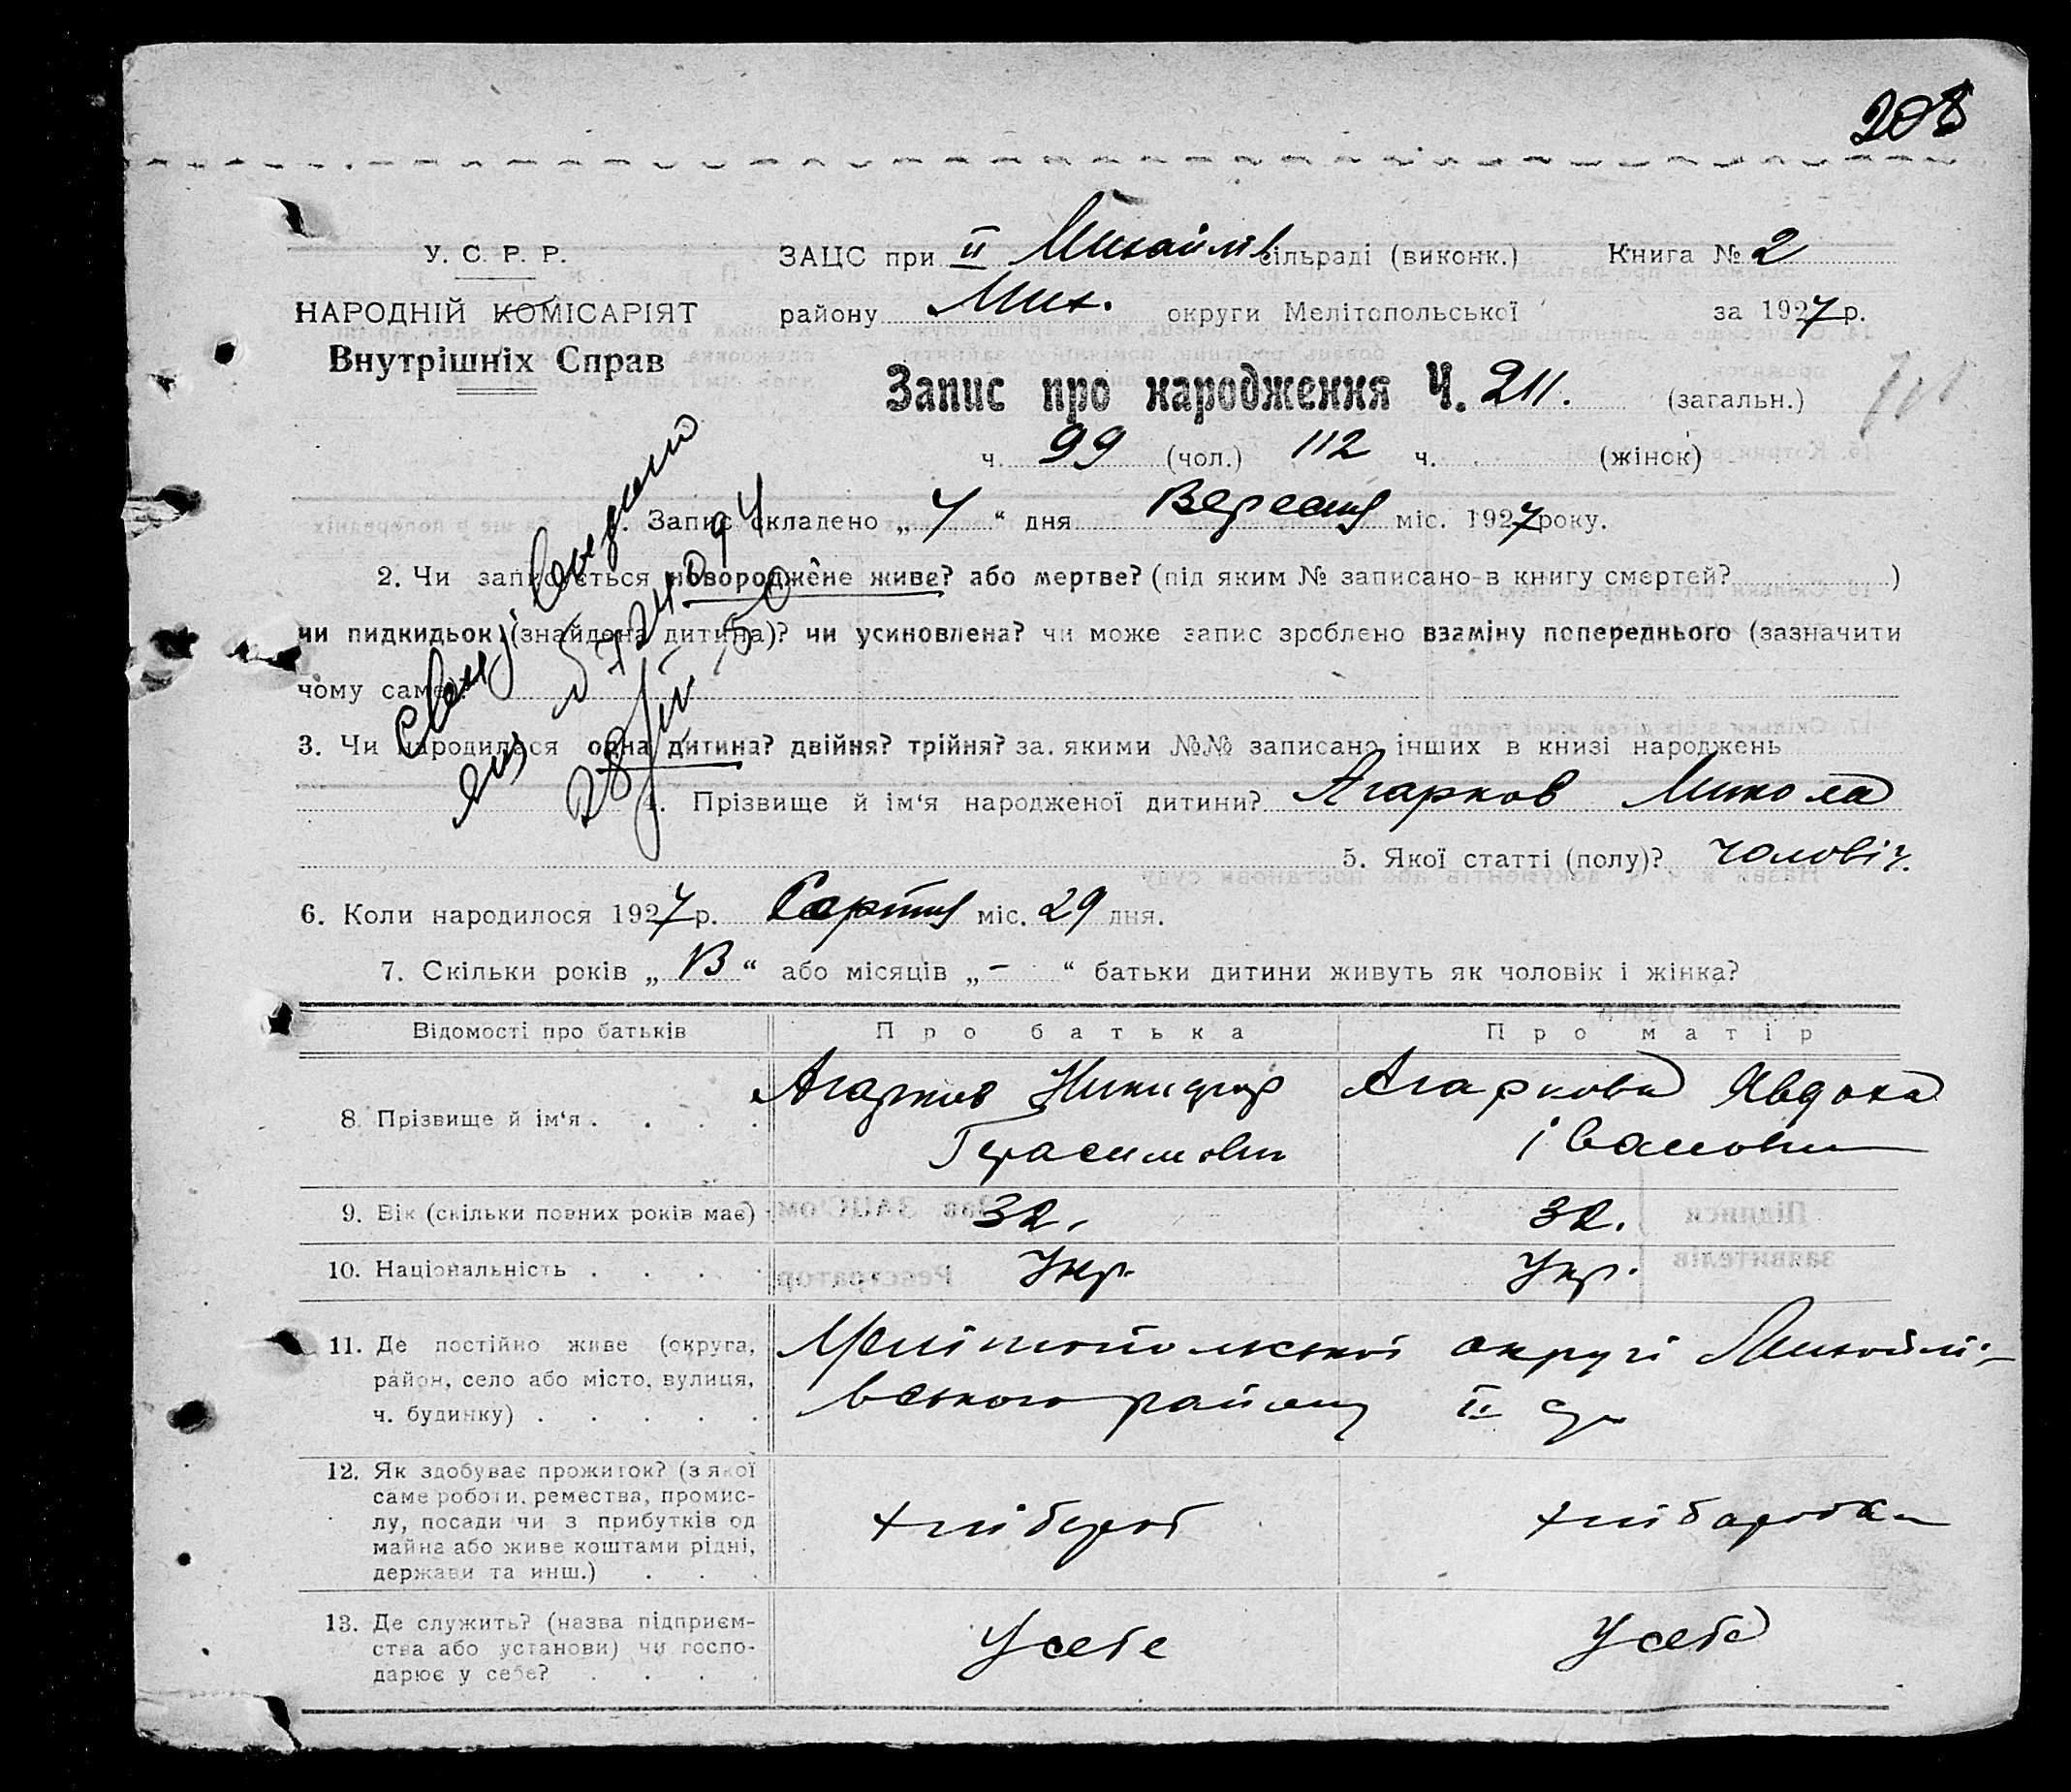 208
У. С. Р. Р.
НАРОДНІЙ КОМІСАРІЯТ
Внутрішніх Справ
ЗАЦС при II Михайлів сільраді (виконк.) Книга № 2
району Мих. округи Мелітопольської за 1927 р.
Запис про народження Ч. 211. (загальн.)
ч. 99 (чол.) 112 ч. (жінок)
Запис складено „ 7 “ дня Вересня міс. 1927 року.
2. Чи записується новороджене живе? або мертве? (під яким № записано в книгу смертей? )
чи пидкидьок (знайдена дитина)? чи усиновлена? чи може запис зроблено взаміну попереднього (зазначити
чому саме).
3. Чи народилося одна дитина? двійня? трійня? за якими №№ записано інших в книзі народжень
4. Прізвище й ім‘я народженої дитини? Агарков Микола
5. Якої статті (полу)? чоловіч.
6. Коли народилося 1927 р. Серпня міс. 29 дня.
7. Скільки років „ 13 “ або місяців „ – “ батьки дитини живуть як чоловік і жінка?
Відомості про батьків Про батька Про матір
8. Прізвище й ім‘я . . . . Агарков Никифор Агаркова Явдоха
Герасимович Івановна
9. Вік (скільки повних років має) 32. 32.
10. Національність . . . . Укр. Укр.
11. Де постійно живе (округа,
район, село або місто, вулиця,
ч. будинку) . . . . .
Мелітопольської округи Михайлі-
вського району II
12. Як здобуває прожиток? (з якої
саме роботи, ремества, промис-
лу, посади чи з прибутків од
майна або живе коштами рідні,
держави та инш.) . . .
хлібороб хліборобка
13. Де служить? (назва підприєм-
ства або установи) чи госпо-
дарює у себе? . . . .
У себе У себе